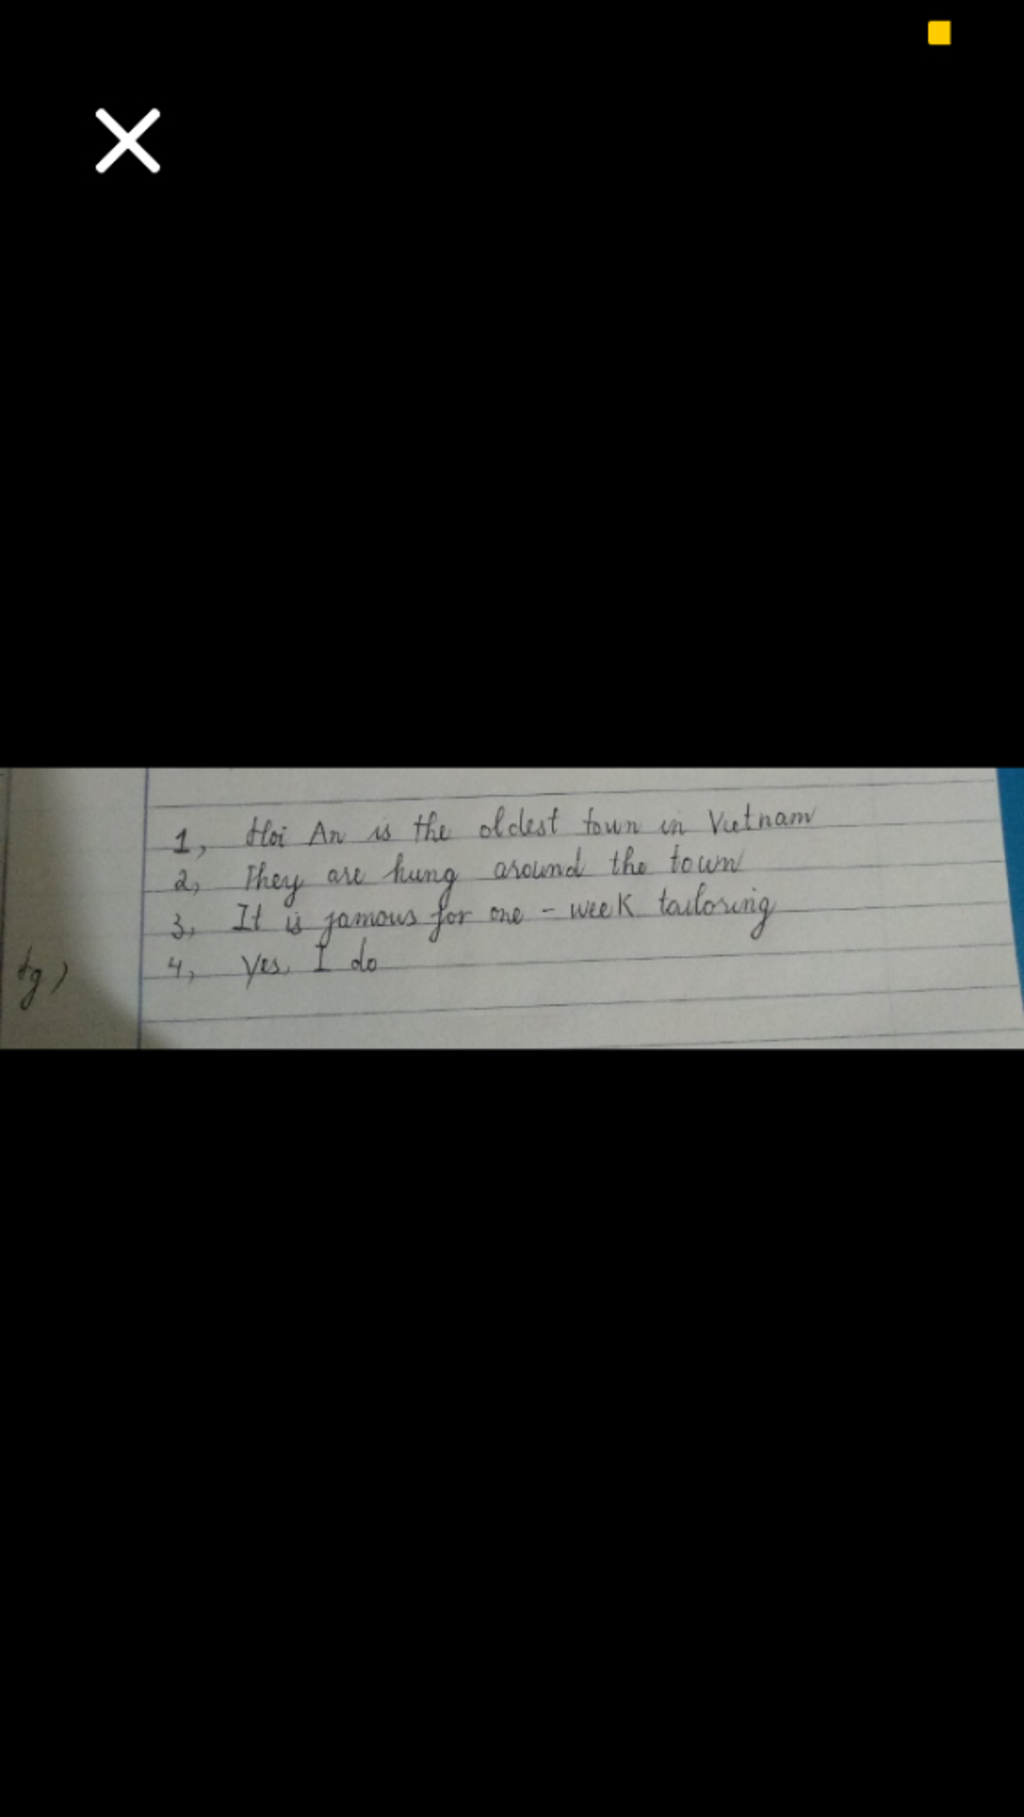 1, Hoi An is the oldest town in Vietnam
2, They are hung around the town
3, It is famous for one - week tailoring
4, Yes, I do